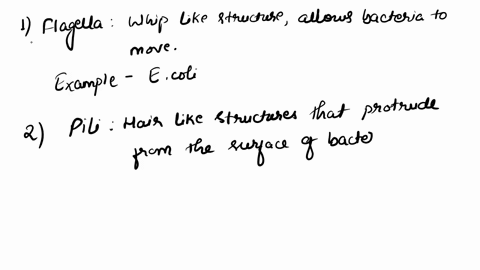 1) Flagella : Whip like structure, allows bacteria to
move.
Example - E.coli
2) Pili : Hair like structures that protrude
from the surface of bacte